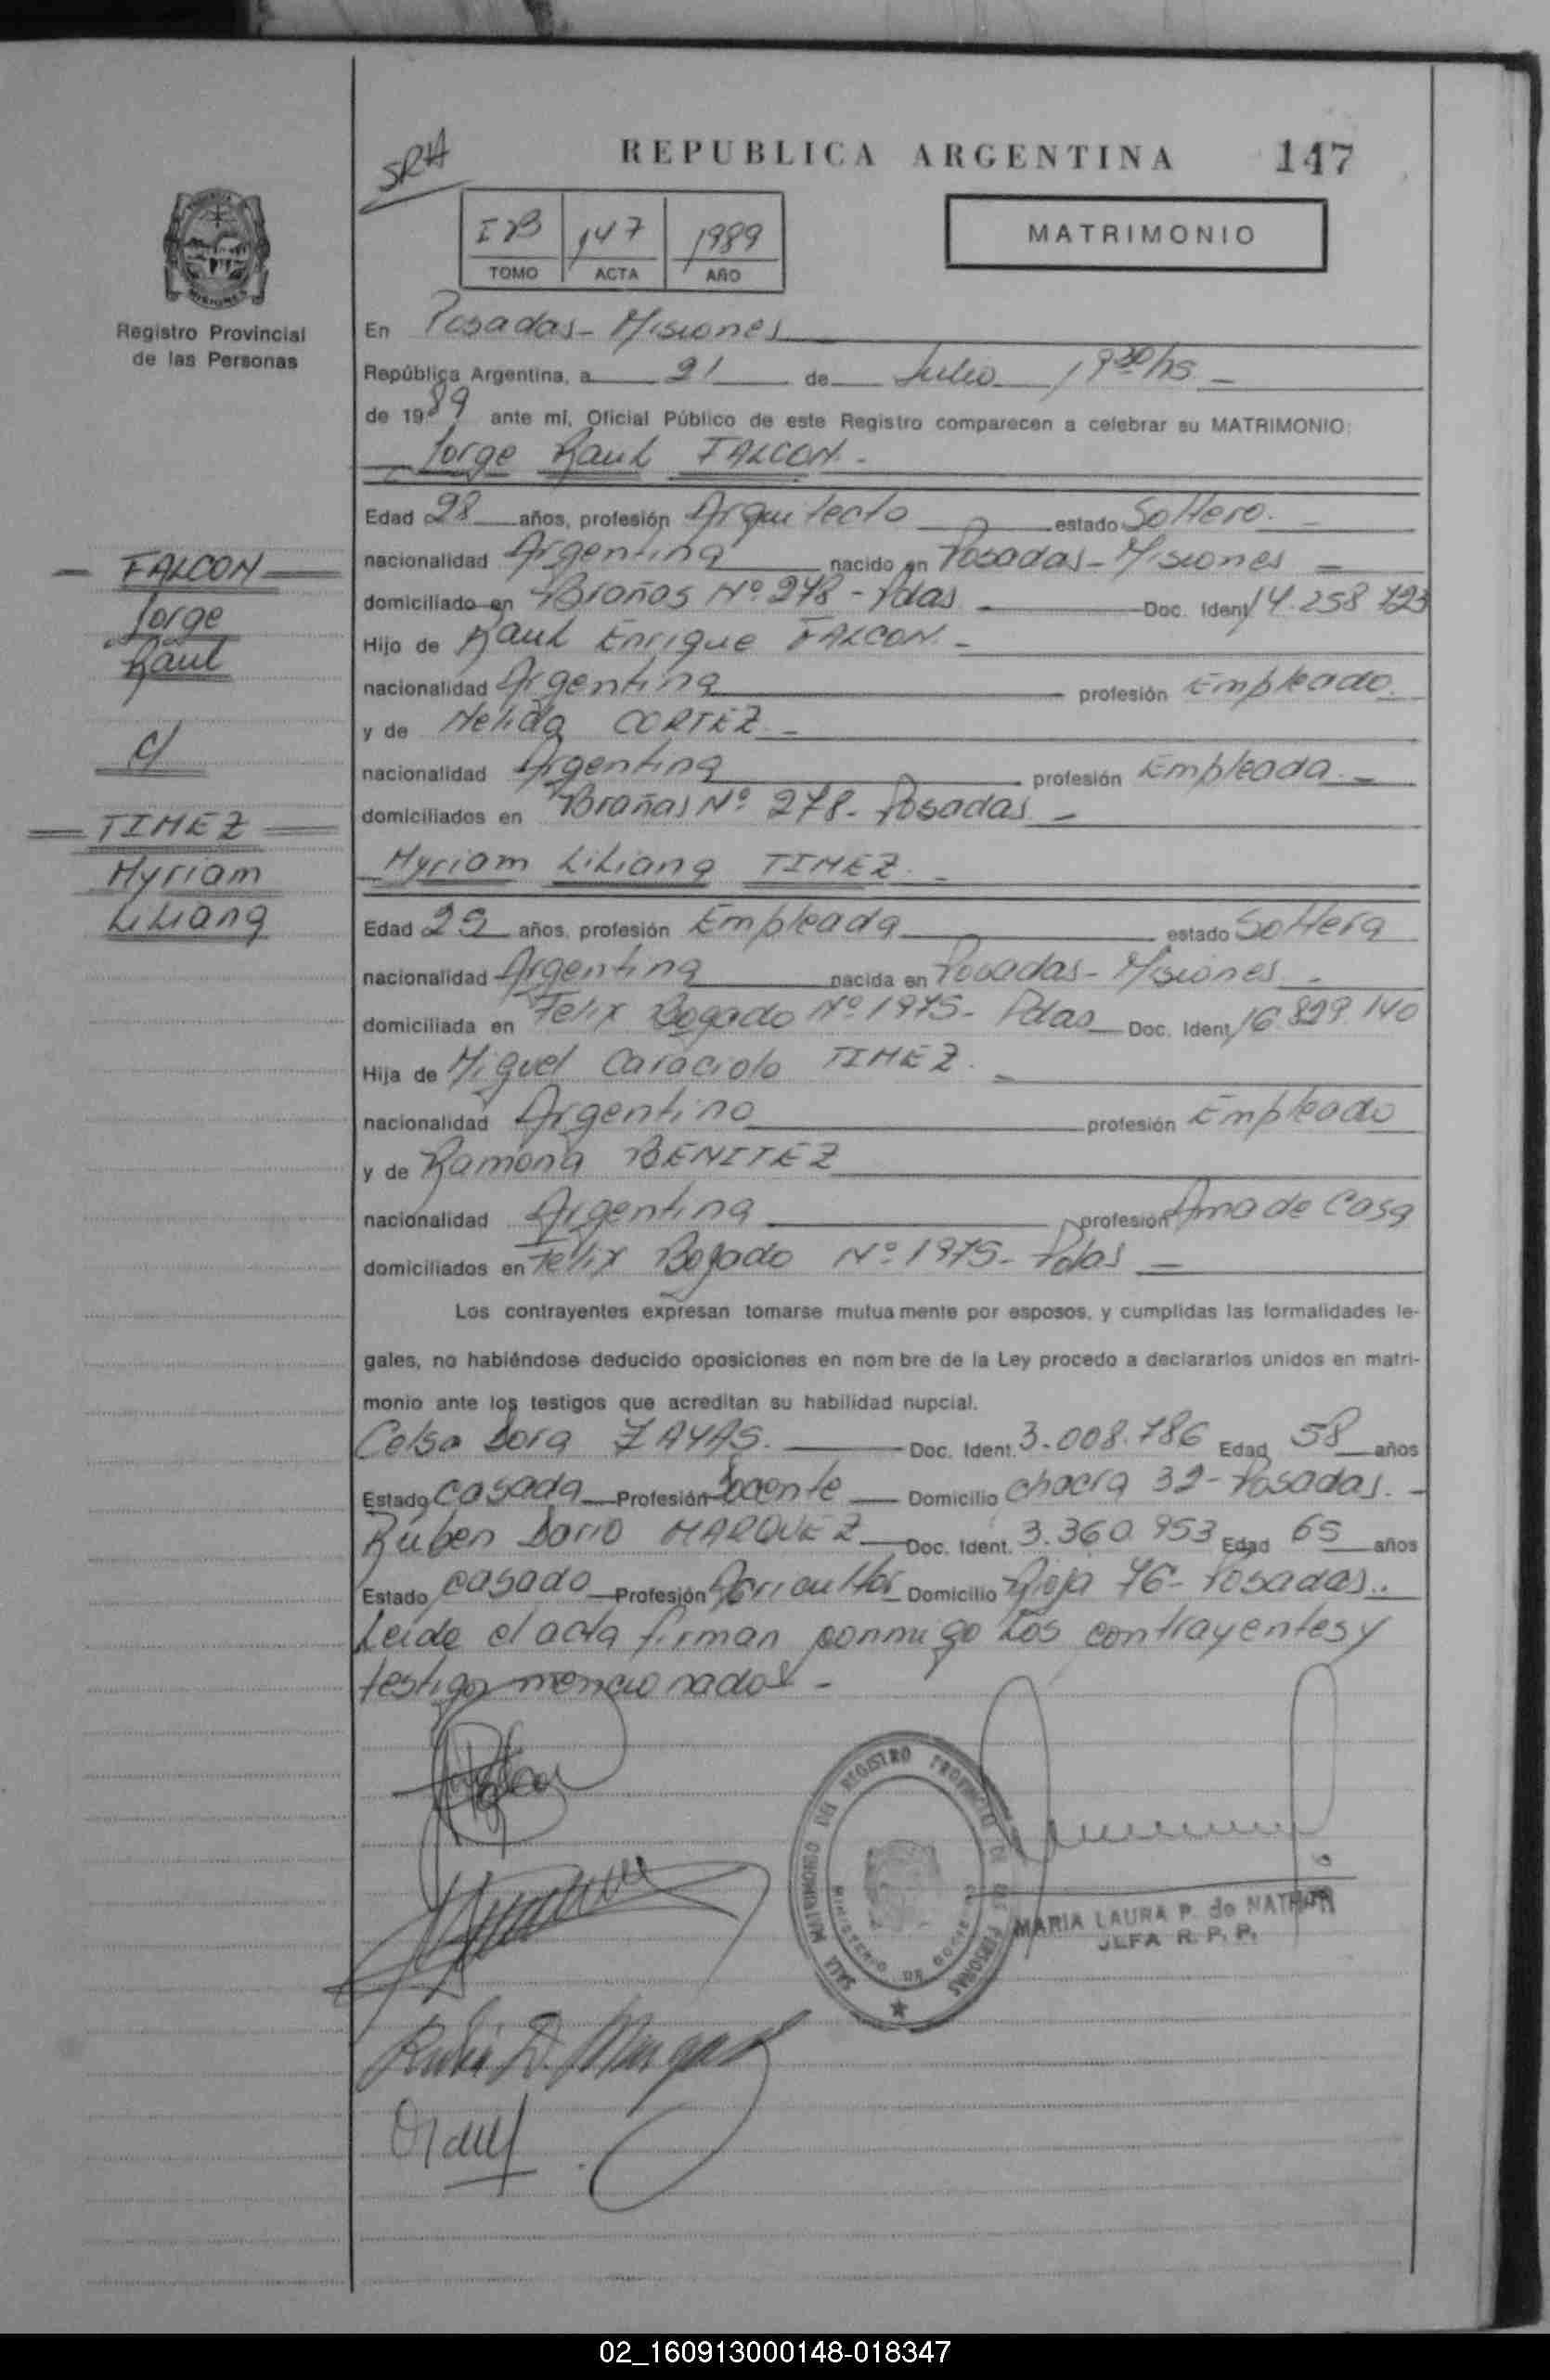 SRH
REPUBLICA ARGENTINA 147
IB 147 1989
TOMO ACTA AÑO
MATRIMONIO
MISIONES
Registro Provincial
de las Personas
En Posadas - Misiones
República Argentina, a 21 de Julio
de 1989 ante mí, Oficial Público de este Registro comparecen a celebrar su MATRIMONIO:
Jorge Raul FALCON.-
Edad 28 años, profesión Arquitecto estado Soltero.-
FALCON
Jorge
Raul
c/
TIMEZ
Myriam
Liliana
nacionalidad Argentina nacido en Posadas - Misiones -
domiciliado en Brañas Nº 278 - Pdas Doc. Ident 14.258.723
Hijo de Raul Enrique FALCON.-
nacionalidad Argentina profesión Empleado.
y de Nelida CORTEZ.-
nacionalidad Argentina profesión Empleada.-
domiciliados en Brañas Nº 278 - Posadas -
Myriam Liliana TIMEZ.-
Edad 25 años, profesión Empleada estado Soltera
nacionalidad Argentina nacida en Posadas - Misiones -
domiciliada en Felix Bogado Nº 1975 - Pdas Doc. Ident. 16.829.140
Hija de Miguel Caraciolo TIMEZ.-
nacionalidad Argentino profesión Empleado
y de Ramona BENITEZ
nacionalidad Argentina profesión Ama de Casa
domiciliados en Felix Bogado Nº 1975 - Pdas -
Los contrayentes expresan tomarse mutua mente por esposos, y cumplidas las formalidades le-
gales, no habiéndose deducido oposiciones en nom bre de la Ley procedo a declararlos unidos en matri-
monio ante los testigos que acreditan su habilidad nupcial.
Celsa Dora ZAYAS. Doc. Ident. 3.008.786 Edad 58 años
Estado casada Profesión Docente Domicilio Chacra 32 - Posadas.-
Ruben Dario MARQUEZ Doc. Ident. 3.360.953 Edad 65 años
Estado casado Profesión Agricultor Domicilio Rioja 76 - Posadas..
Leida el acta firman conmigo los contrayentes y
testigos mencionados -
REGISTRO PROVINCIAL DE LAS PERSONAS
SALA MATRIMONIO
MINISTERIO DE GOBIERNO
MARIA LAURA P. de
JEFA R. P. P.
02_160913000148-018347